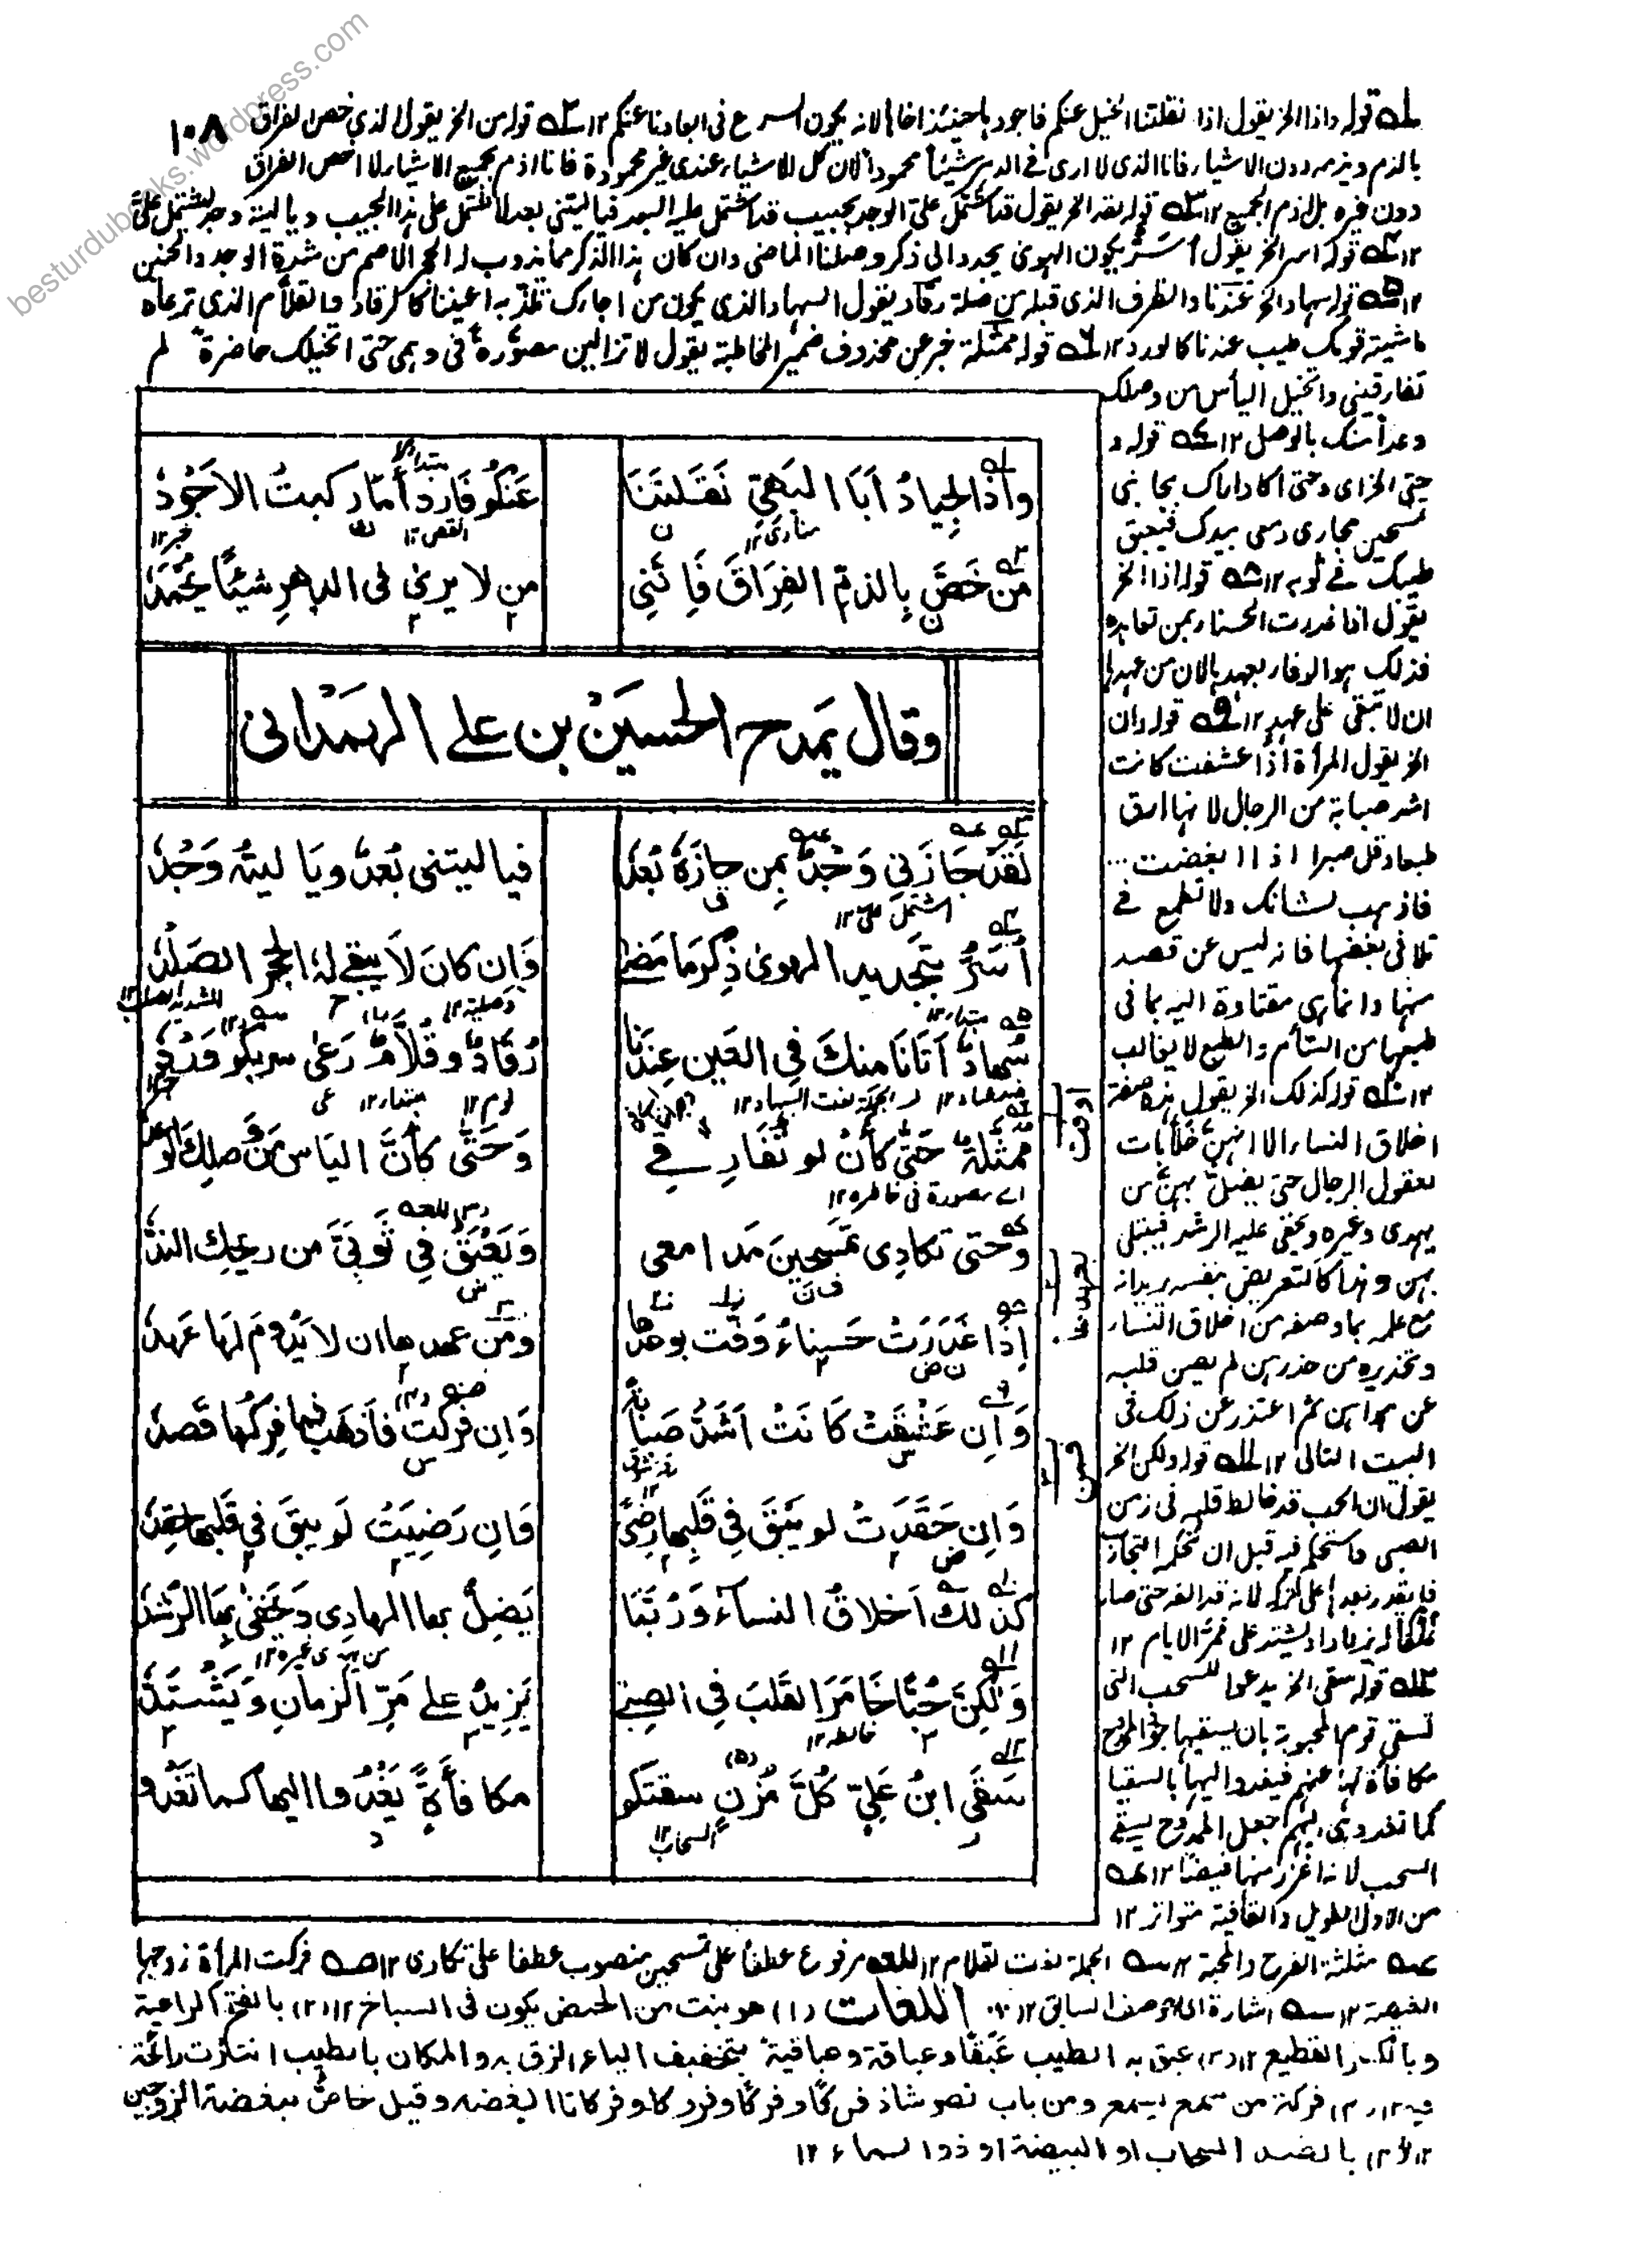 ١٠٨
له قوله واذا الخ يقول اذا نقلتنا الخيل عنكم فاجودها حينئذ اخفها لانه يكون اسرع فى ابعادنا عنكم ١٢ ٢ه قوله من الخ يقول الذي خص الفراق
بالذم ويذمه دون الاشياء فانا الذى لا ارى فى الدهر شيئاً محموداً لان كل الاشياء عندى غير محمودة فانا اذم جميع الاشياء لا اخص الفراق
دون غيره بل اذم الجميع ١٢ ٣ه قوله لقد الخ يقول قد اشتمل علىّ الوجد بحبيب قد اشتمل عليه البعد فيا ليتنى بعد لاشتمل على هذا الحبيب ويا ليته وجد ليشتمل علىّ
١٢ ٤ه قوله اسر الخ يقول أُسَرُّ بكون الهوىٰ يجدد الى ذكر وصلنا الماضى وان كان هذا الذكر مما يذوب له الحجر الاصم من شدة الوجد والحنين
١٢ ٥ه قوله سهاد الخ عندنا والظرف الذى قبله من صلة رقاد يقول السهاد الذى يكون من اجلك تلذ به اعيننا كالرقاد والقلام الذى ترعاه
ماشية قومك طيب عندنا كالورد ١٢ ٦ه قوله ممثلة خبر عن محذوف ضمير المخاطبة يقول لا تزالين مصوّرة فى وهمى حتى اتخيلك حاضرة لم
تفارقينى واتخيل اليأس من وصلك
وعداً منك بالوصل ١٢ ٧ه قوله و
حتى الخ اى وحتى اكاد اياك بجانبى
تمسحين مجارى دمعى بيدك فيعبق
طيبك فى ثوبى ١٢ ٨ه قوله اذا الخ
يقول اذا غدرت الحسناء بمن تعاهده
فذلك هو الوفاء بعهدها لان من عهدها
ان لا تبقى على عهد ١٢ ٩ه قوله وان
الخ يقول المرأة اذا عشقت كانت
اشد صبابة من الرجال لانها ارق
طبعا وقل صبرا اذا ابغضت ...
فاذهب لشانك ولا تطمع فى
تلافى بغضها فانه ليس عن قصد
منها وانما هى مقتادة اليه بما فى
طبعها من السأم والطبع لا يغالب
١٢ ١٠ه قوله كذلك الخ يقول هذه صفة
اخلاق النساء الا انهن خلابات
لعقول الرجال حتى يضل بهن من
يهدى وغيره ويخفى عليه الرشد فيبتلى
بهن وهذا كالتعريض بنفسه يريد انه
مع علمه بما وصفه من اخلاق النساء
وتحذيره من حذرهن لم يصن قلبه
عن هواهن ثم اعتذر عن ذلك فى
البيت التالى ١٢ ١١ه قوله ولكن الخ
يقول ان الحب قد خالط قلبه فى زمن
الصبى واستحكم فيه قبل ان تحكم التجارب
فلم يقدر بعدها على تركه لانه قد الفه حتى صار
يزداد ويشتد على ممر الايام ١٢
١٢ه قوله سقى الخ يدعو للسحب التى
تسقى قوم المحبوبة بان يسقيها جود الممدوح
مكافأة لها عنهم فيغدو اليها بالسقيا
كما تغدو هى اليهم جعل الممدوح يسقى
السحب لانه اغزر منها فيضا ١٢ عه
من الاول الطويل والقافية متواتر ١٢
وَاِذَا الجِيادُ اَبَا البَهِىِّ نَقَلنَنَا
عَنكُم فَاَردأُ مَا رَكِبتُ الاَجْوَدُ
مَن خَصَّ بِالذمِّ الفِرَاقَ فَاِنَّنِى
مَن لا يرىٰ فى الدهرِ شيئًا يُحْمَدُ
وقال يَمدح الحسَين بن على الهمَدانى
لَقَد حَازَنِى وَجْدٌ بِمن حازَهُ بُعْدُ
فيا ليتنى بُعدٌ ويَا ليتَهُ وَجْدُ
اشتمل علىّ ١٢
اُسَرُّ بتَجديدِ الهوىٰ ذِكرَ مَا مَضىٰ
وَاِن كانَ لاَ يبقىٰ لهُ الحجَرُ الصَلْدُ
سُهادٌ اَتَانَا منكَ فى العَينِ عِندَنَا
رُقَادٌ وقُلَّامٌ رَعىٰ سربُكم وَرْدُ
مُمَثَّلةٌ حَتّٰى كأن لم تُفَارِقِى
وَحَتّٰى كأنَّ اليَاسَ مِن وَصلِكِ الوعدُ
اے مصورة فى خاطره ١٢
وَحتى تكادِى تَمسَحِينَ مَدامعى
وَيَعْبَقُ فِى ثَوبَىَّ من ريحِكِ الندُّ
اِذَا غَدَرَتْ حَسناءُ وَفَت بعهدها
ومَن عهدها ان لا يَدُومَ لَهَا عَهدُ
وَاِن عَشِقَتْ كَانَتْ اَشَدَّ صَبابةً
وَاِن فَرِكَت فاَذهَب فما فِركُها قَصدُ
وَاِن حَقَدَتْ لم يَبْقَ فِى قَلبِها رِضىً
وَاِن رَضِيَتْ لَم يبقَ فِى قَلبِها حِقدُ
كَذٰلكَ اَخلاقُ النسآءِ وَرُبَّمَا
يَضِلُّ بها الهادِى وَيَخفىٰ بِهَا الرُّشدُ
من يهدى غيره ١٢
وَلٰكِنَّ حُبًّا خَامَرَ القَلبَ فِى الصِبىٰ
يَزِيدُ على مَرِّ الزمانِ وَيَشْتَدُّ
خالطه ١٢
سَقَى ابنُ عَلِىٍّ كُلَّ مُزْنٍ سقتكم
مكافأةً يَغْدُو اليها كما تَغْدُو
السحاب ١٢
عه مثلثة الفرح والمحبة ١٢ سه الجملة نعت لقلام ١٢ للعه مرفوع عطفاً على تمسحين منصوب عطفا على تكادى ١٢ صه فركت المرأة زوجها
ابغضته ١٢ سه اشارة الى الوصف السابق ١٢ اللغات (١) هو نبت من الحمض يكون فى السباخ ١٢ (٢) بالفتح الراعية
وبالكسر القطيع ١٢ (٣) عبق به الطيب عَبَقًا وعباقة وعباقيةً بتخفيف الياء لزق به والمكان بالطيب انتشرت رائحة
فيه ١٢ (٤) فركة من سمع يسمع ومن باب نصر شاذ فركًا وفركًا وفروكا وفركانا ابغضه وقيل خاص ببغضة الزوجين
١٢ (٥) بالضم السحاب او البيضة او ذو الماء ١٢
besturdubooks.wordpress.com